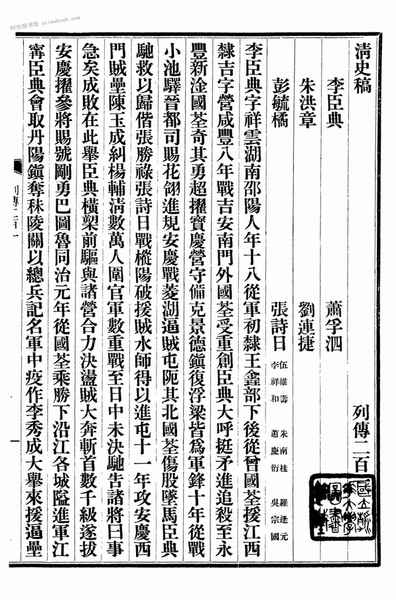 清史稿
列傳二百
李臣典　蕭孚泗
朱洪章　劉連捷
彭毓橘　張詩日　伍維壽　朱南桂　羅逢元
李祥和　蕭慶衍　吳宗國
李臣典字祥雲湖南邵陽人年十八從軍初隸王鑫部下後從曾國荃援江西
隸吉字營咸豐八年戰吉安南門外國荃受重創臣典大呼挺矛進追殺至永
豐新淦國荃奇其勇超擢寶慶營守備克景德鎮復浮梁皆爲軍鋒十年從戰
小池驛晉都司賜花翎進規安慶戰菱湖逼賊屯阨其北國荃傷股墜馬臣典
馳救以歸偕張勝祿張詩日戰樅陽破援賊水師得以進屯十一年攻安慶西
門賊壘陳玉成糾楊輔清數萬人圍官軍數重戰至日中未決馳告諸將曰事
急矣成敗在此舉臣典橫槊前驅與諸營合力決盪賊大奔斬首數千級遂拔
安慶擢參將賜號剛勇巴圖魯同治元年從國荃乘勝下沿江各城隘進軍江
甯臣典會取丹陽鎮奪秣陵關以總兵記名軍中疫作李秀成大舉來援逼壘